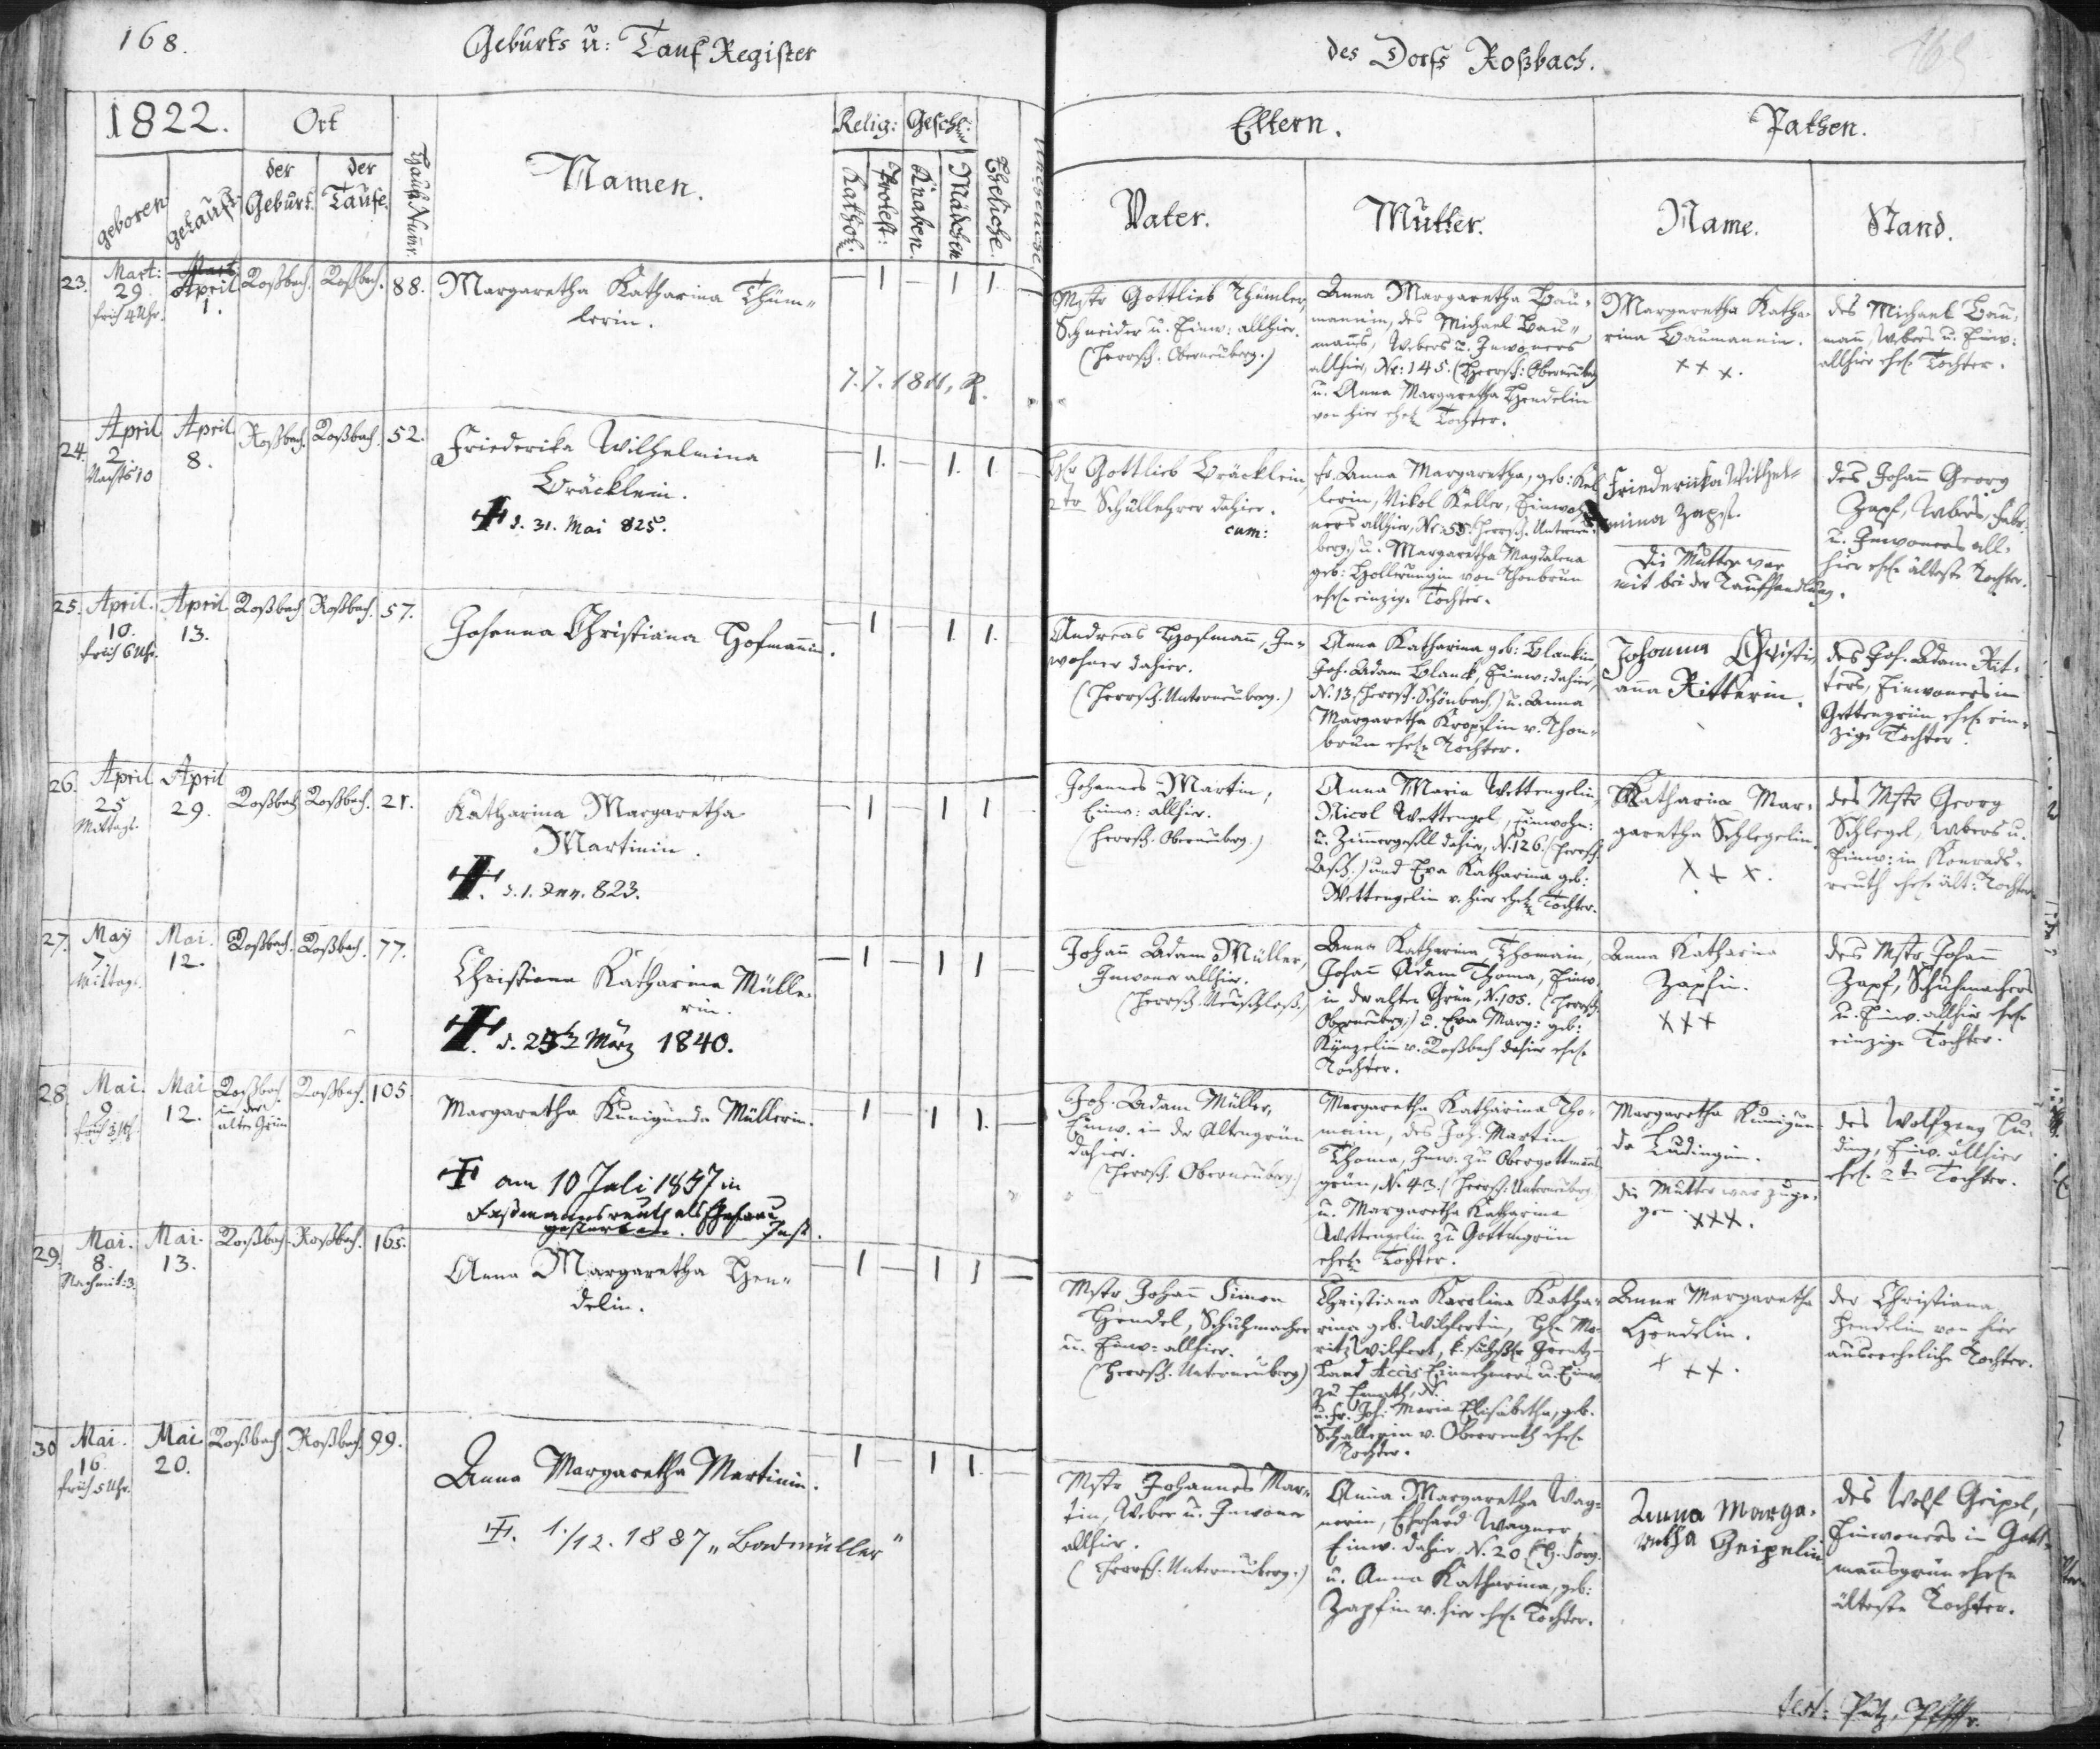 168.
Geburts u: Tauf Register
des Dorfs Roßbach.
1822.
Ort
Namen.
Relig: Geschl:
Eltern.
Pathen.
geboren
getauft
der Geburt.
der Taufe.
Hauß Numr.
Kathol:
Protest:
Knaben.
Mädchen
Eheliche.
Uneheliche
Vater.
Mutter.
Name.
Stand.
23. Mart: 29 früh 4 Uhr.
April 1.
Roßbach. Roßbach. 88.
Margaretha Katharina Thüm-
lerin.
7.7.1811, R.
Mstr Gottlieb Thümler,
Schneider u. Einw: allhier.
(Herrsch. Oberneuberg.)
Anna Margaretha Bau-
mannin, des Michael Bau-
manns, Webers u. Inwoners
allhier, Nr: 145. (Herrsch: Oberneuberg
u. Anna Margaretha Hendelin
von hier ehel. Tochter.
Margaretha Katha-
rina Baumannin.
xxx.
des Michael Bau-
mann, Webers u. Einw:
allhier ehel. Tochter.
24. April 2. Nachts 10
April 8.
Roßbach. Roßbach. 52.
Friederika Wilhelmina
Bräcklein.
d. 31. Mai 825.
Hr Gottlieb Bräcklein,
2ter Schullehrer dahier.
cum:
Fr. Anna Margaretha, geb: Kel-
lerin, Nikol Keller, Einwoh-
ners allhier, Nr: 55. (Herrsch. Unterneu-
berg) u. Margaretha Magdalena
geb: Hollerungin von Thonbrun
ehel. einzige Tochter.
Friederika Wilhel-
mina Zapf.
Die Mutter war
mit bei der Taufhandlung.
des Johann Georg
Zapf, Webers, Fabr.
u. Inwoners all-
hier ehel. älteste Tochter.
25. April. 10. früh 6 Uhr.
April 13.
Roßbach Roßbach. 57.
Johanna Christiana Hofmannin.
Andreas Hofmann, In-
wohner dahier.
(Herrsch. Unterneuberg.)
Anna Katharina geb: Blankin,
Joh. Adam Blanck, Einw: dahier,
N. 13. (Herrsch. Schönbach) u. Anna
Margaretha Kropfin v. Thon-
brun ehel. Tochter.
Johanna Christi-
anna Ritterin.
des Joh. Adam Rit-
ters, Einwoners in
Gottengrün ehel. ein-
zige Tochter.
26. April 25 Mittags
April 29.
Roßbach Roßbach. 21.
Katharina Margaretha
Martinin.
d. 1. Jan. 823.
Johannes Martin,
Einw: allhier.
(Herrsch. Oberneuberg.)
Anna Maria Wettengelin,
Nicol Wettengel, Einwohn:
u. Zimmergesell dahier, N. 126. (Herrsch.
Asch.) und Eva Katharina geb:
Wettengelin v. hier ehel. Tochter.
Katharina Mar-
garetha Schlegelin.
xxx.
des Mstr Georg
Schlegel, Webers u.
Einw: in Konrads-
reuth ehel. ält: Tochter.
27. May 7. Mittags.
Mai. 12.
Roßbach. Roßbach. 77.
Christiana Katharina Mülle-
rin.
März 1840.
Johann Adam Müller,
Inwoner allhier.
(Herrsch. Neuschloß.)
Anna Katharina Thomain,
Johann Adam Thoma, Einw.
in der alten Grün, N. 105. (Herrsch.
Oberneuberg.) u. Eva Marg: geb:
Künzelin v. Roßbach dahier ehel.
Tochter.
Anna Katharina
Zapfin.
xxx
des Mstr Johann
Zapf, Schuhmachers
u. Einw. allhier ehel.
einzige Tochter.
28. Mai. 9. früh 3 Uhr.
Mai 12.
Roßbach in der alten Grün
Roßbach. 105.
Margaretha Kunigunda Müllerin.
am 10 Juli 1857 in
Faßmannsreuth als Ehefrau
gestorben.
Joh. Adam Müller,
Einw. in der Altengrün
dahier.
(Herrsch. Oberneuberg.)
Margaretha Katharina Tho-
main, des Joh. Martin
Thoma, Inw. zu Obergottmanns-
grün, N. 43. (Herrsch: Unterneuberg
u. Margaretha Katharina
Wettengelin zu Gottengrün
ehel. Tochter.
Margaretha Kunigun-
da Ludingin.
Die Mutter war zuge-
gen. xxx.
des Wolfgang Lu-
ding, Einw. allhier
ehel. 2te Tochter.
29. Mai. 8. Nachmit: 3.
Mai. 13.
Roßbach. Roßbach. 165.
Anna Margaretha Hen-
delin.
Mstr Johann Simon
Hendel, Schuhmacher
u. Einw. allhier.
(Herrsch. Unterneuberg)
Christiana Karolina Katha-
rina geb. Wilfertin, Hr. Mo-
ritz Wilfert, k. sächß. Grentz-
Land Accis Einnehmers u. Einw.
zu
u. Fr. Joh: Maria Elisabetha, geb.
Schallerin v. Oberreuth ehel.
Tochter.
Anna Margaretha
Hendelin.
xxx.
der Christiana
Hendelin von hier
ausereheliche Tochter.
30 Mai. 16. früh 5 Uhr.
Mai. 20.
Roßbach Roßbach. 99.
Anna Margaretha Martinin.
1./12. 1887 „Badmüller"
Mstr Johannes Mar-
tin, Weber u. Inwoner
allhier.
(Herrsch. Unterneuberg.)
Anna Margaretha Wag-
nerin, Erhard Wagner
Einw. dahier, N. 20 (H. Sorg.
u. Anna Katharina, geb:
Zapfin v. hier ehel. Tochter.
Anna Marga-
retha Geipelin
des Wolf Geipel,
Einwoners in Gott-
mannsgrün ehel.
älteste Tochter.
test: